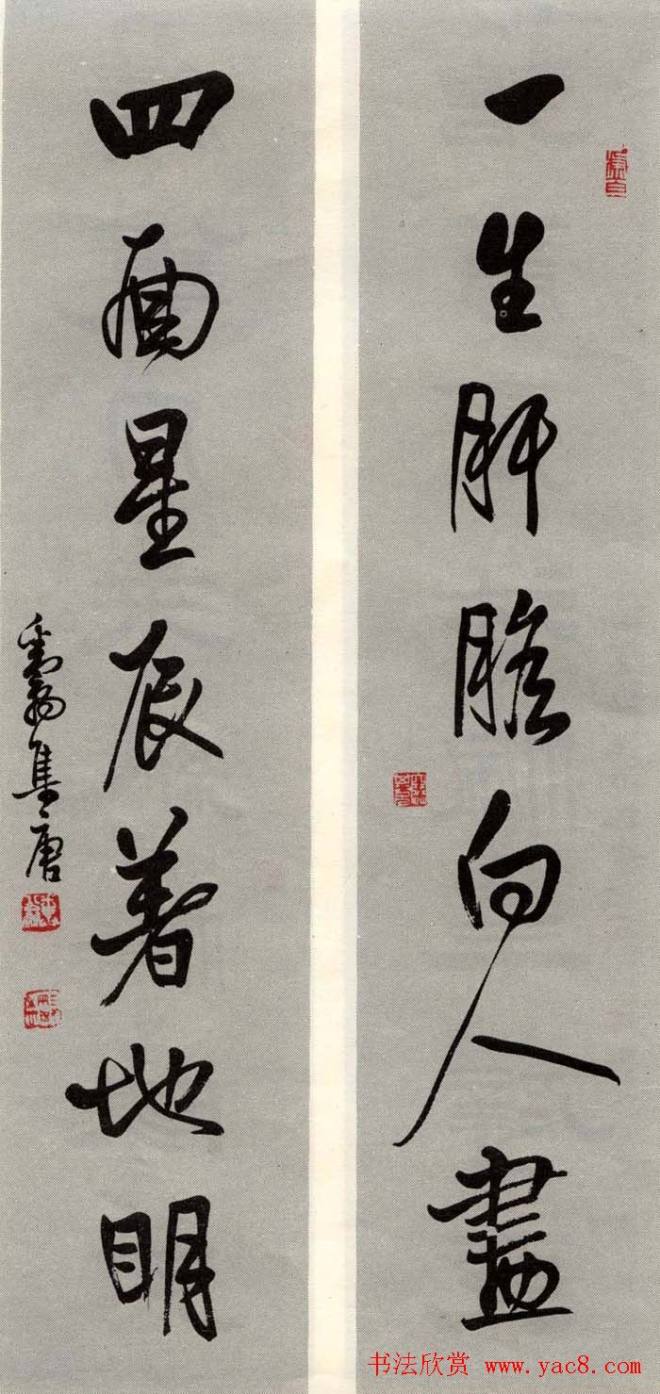 一生肝膽向人盡
四面星辰着地明
集唐
书法欣赏 www.yac8.com